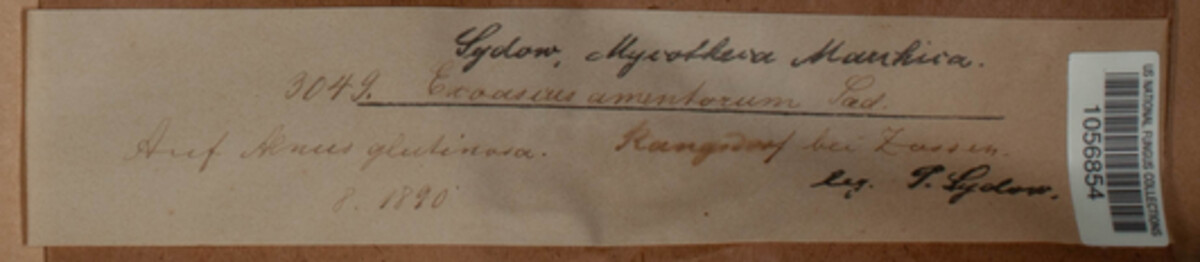 Sydow, Mycotheca Marchica.
3049. Exoascus amentorum Sad.
Auf Alnus glutinosa. Rangsdorf bei Zossen.
8. 1890
leg. P. Sydow.
US NATIONAL FUNGUS COLLECTIONS
1056854